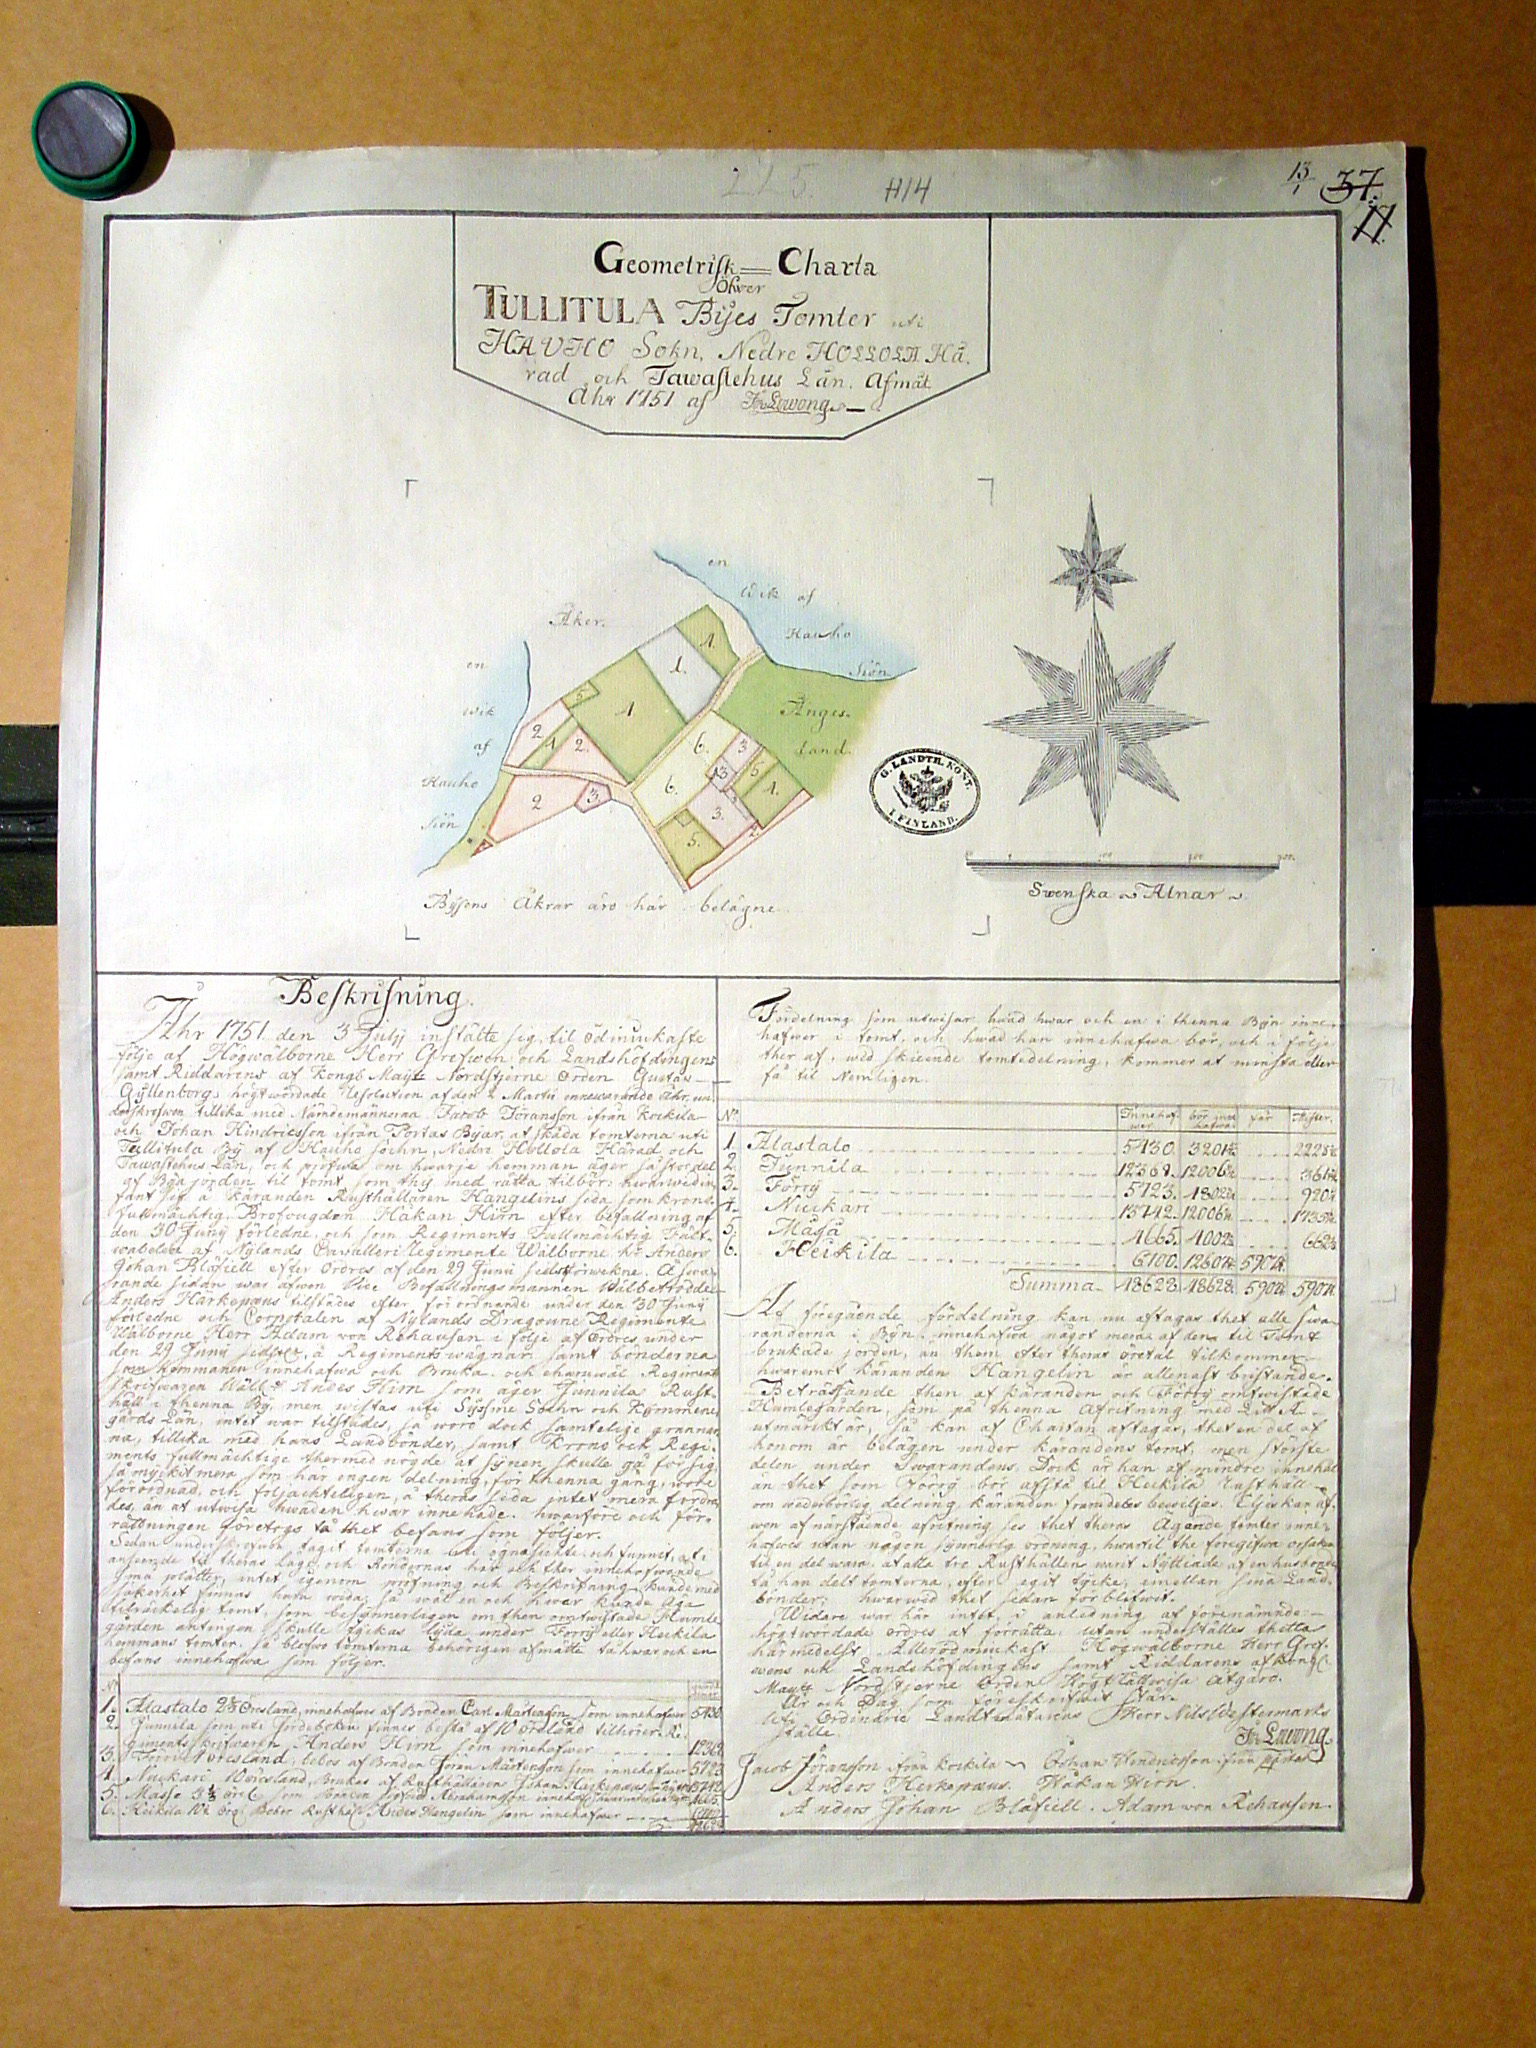 225.
H14
13/1
37.
17.
Geometrisk Charta
Öfwer
TULLITULA Byes Tomter uti
HAUHO Sokn, Nedre HOLLOLA Hä-
rad och Tawastehus Län. Afmät
Åhr 1751 af
en
Wik af
Hauho
Siön
Åker.
en
wik
af
Hauho
Siön
1.
1.
1
5
2
1
2.
2
3.
6.
6.
3
5
1.
3
3.
5.
2.
Änges-
land.
G. LANDTM. KONT.
I FINLAND.
Swenska Alnar
Bysens Åkrar äro här belägne
Beskrifning.
Åhr 1751 den 3 July instälte sig, til ödmiukaste
följe af Högwälborne Herr Grefwen och Landshöfdingens
samt Riddarens af Kongl Mayts Nordstjerne Orden Gustaf
Gyllenborgs högtwördade Resolution af den 2 Martii innewarande åhr, un-
derskrefwen tillika med Nämdemännerna Jacob Jöransson ifrån Kockila
och Johan Hindricsson ifrån Portas Byar, at skåda tomterna uti
Tullitula By af Hauho sochn, Nedre Hollola Härad och
Tawastehus Län, och pröfwa om hwarje hemman äger så stor del
af Byajorden til tomt som thy med rätta tilbör: hwarwid in-
fant sig å Käranden Rusthållaren Hangelins sida som krono-
fullmächtig Brofougden Håkan Hirn efter befallning af
den 30 Juny förledne, och som Regiments Fullmächtig Fält-
wäbelen af Nylands Cavalleri Regimente Wälborne hr Anders
Johan Blåfiell efter Ordres af den 29 Junii sidstförwekne. Å Swa-
rande sidan war äfwen Vice Befallningsmannen Wälbetrodde
Anders Harkepæus tilstädes efter förordnande under den 30 Juny
förledne och Corporalen af Nylands Dragoune Regimente
Wälborne Herr Adam von Rehausen i följe af Ordres under
den 29 Junii sidstl, å Regimentswägnar samt bönderna
som hemmanen innehafwa och Bruka. och ehuruwäl Regiments
skrifwaren Anders Hirn som äger Junnila Rust-
håll i thenna By, men wistas uti Sysmä Sochn och Kymmene-
gårds Län, intet war tilstädes, så woro dock samtelige grannar-
na, tillika med hans Landbönder, samt Krono och Regi-
ments fullmächtige thermed nögde at synen skulle gå för sig,
så myckit mera som här ingen delning, för thenna gång, wore
förordnad, och följachteligen, å theras sida intet mera fordra-
des, än at utwisa hwaden hwar innehade. hwarföre och för-
rättningen företogs tå thet befans som följer.
Sedan underskrefwen tagit tomterna i ögnasichte och funnit, at i
anseende til theras läge och Röndernas här och ther innehafwande
små plätter, intet igenom pröfning och Beskrifning kunde med
säkerhet finnas hwar wida, så wäl en och hwar kunde äga
tilräckelig tomt, som besynnerligen om then omtwistade Humle-
gården antingen skulle tyckas lyda under Förry eller Heickila
hemmans tomter, så blefwo tomterna behörigen afmätte tå hwar och en
befans innehafwa som följer.
1. Alastalo 2 2/3 Öresland, innehafwes af Bonden Carl Mårtensson som innehafwer 5430
2. Junnila som uti Jordeboken finnes bestå af 10 öresland tilhörer Re-
giments skrifwaren Anders Hirn som innehafwer 12368.
3. Förri öresland, bebos af Bonden Jöran Mårtensson som innehafwer 5123
4. Nuckari 10 öresland, Brukas af Rusthållaren Johan Harkepæus
5. Masso 3 1/3 öre som Bonden Sigfred Abrahamsson innehafwer
6. Heikila 10 1/2 öre. Beber Rusthåll Anders Hangelin som innehafwer
Fördelning som utwisar hwad hwar och en i thenna Byn inne-
hafwer i tomt, och hwad han innehafwa bör, och i följe
ther af, wid skieende tomtedelning, kommer at minsta eller
få til Nemligen.
No. Innehaf-wer. bör inne hafwa får Mister.
1. Alastalo 5430. 3201 2225
2. Junnila 12368. 12006 361
3. Förry 5723. 4802 920
4. Nuckari 13742. 12006 1735
5. Måsa 4665. 4002 662
6. Heickila 6700. 12607 5907
Summa 48628. 48628. 5907 5907
Af föregående fördelning kan nu aftagas thet alle swa-
randerna i Byn innehafwa något mera af den til Tomt
brukade jorden, än them efter theras öretal tilkommer
hwaremot Käranden Hangelin är allenast bristande.
Beträffande then af Käranden och Förry omtwistade
Humlegården, som på thenna afritning med Litt A.
utmärkt är, så kan af Chartan aftagas, thet en del af
honom är belägen under Kärandens tomt, men största
delen under Swarandens. Dock är han af mindre innehåll
än thet som Förry bör afstå til Heickila Rusthåll
om wederbörlig delning Käranden framdeles bewiljes. Eljes kan äf-
wen af närstående afritning ses thet theras Ägande tomter inne-
hafwes utan någon synnerlig ordning, hwartil the föregifwa orsaken
til en del wara, at alla tre Rusthållen warit Nyttiade af en husbonde
tå han delt tomterna, efter eget tycke, emellan sina Land-
bönder; hwarwid thet sedan förblifwit.
Widare war här intet, i anledning af förenämnde
högtwördade Ordres at förrätta, utan underställes thetta
härmedelst Allerödmiukast Högwälborne Herr Gref-
wens och Landshöfdingens samt Riddarens af Kongl
Mayts Nordstjerne Orden Högt Rättwisa åtgärd.
År och Dag som föreskrifwit står.
Uti Ordinarie Landtmätarens Herr Nils Westermarks
ställe.
Jacob Jöransson ifrån Kockila Johan Hendricsson ifrån Portas
Anders Herkepæus. Håkan Hirn.
Anders Johan Blåfiell. Adam von Rehausen.